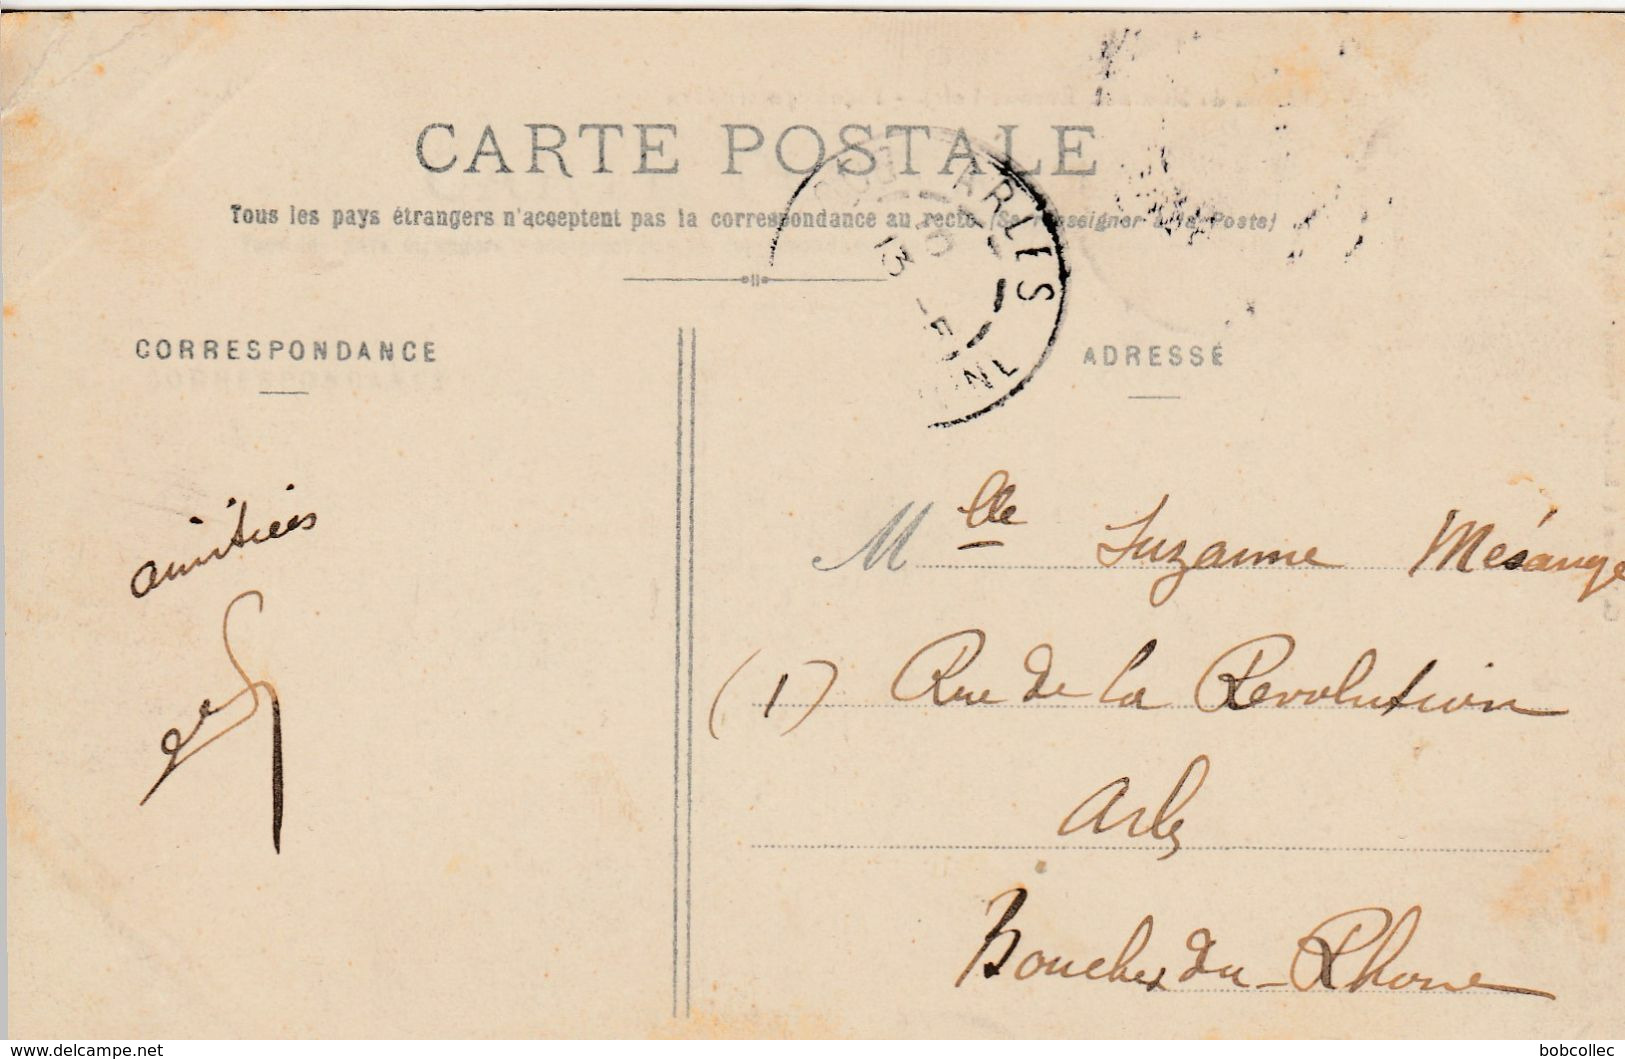 CARTE POSTALE
Tous les pays étrangers n'acceptent pas la correspondance au recto (Se renseigner à la Poste)
ARLES
13
CORRESPONDANCE
ADRESSE
amitiés
Mlle Suzanne Mésange
(1) Rue de la Revolution
Arles
Bouches du-Rhone
www.delcampe.net
bobcollec